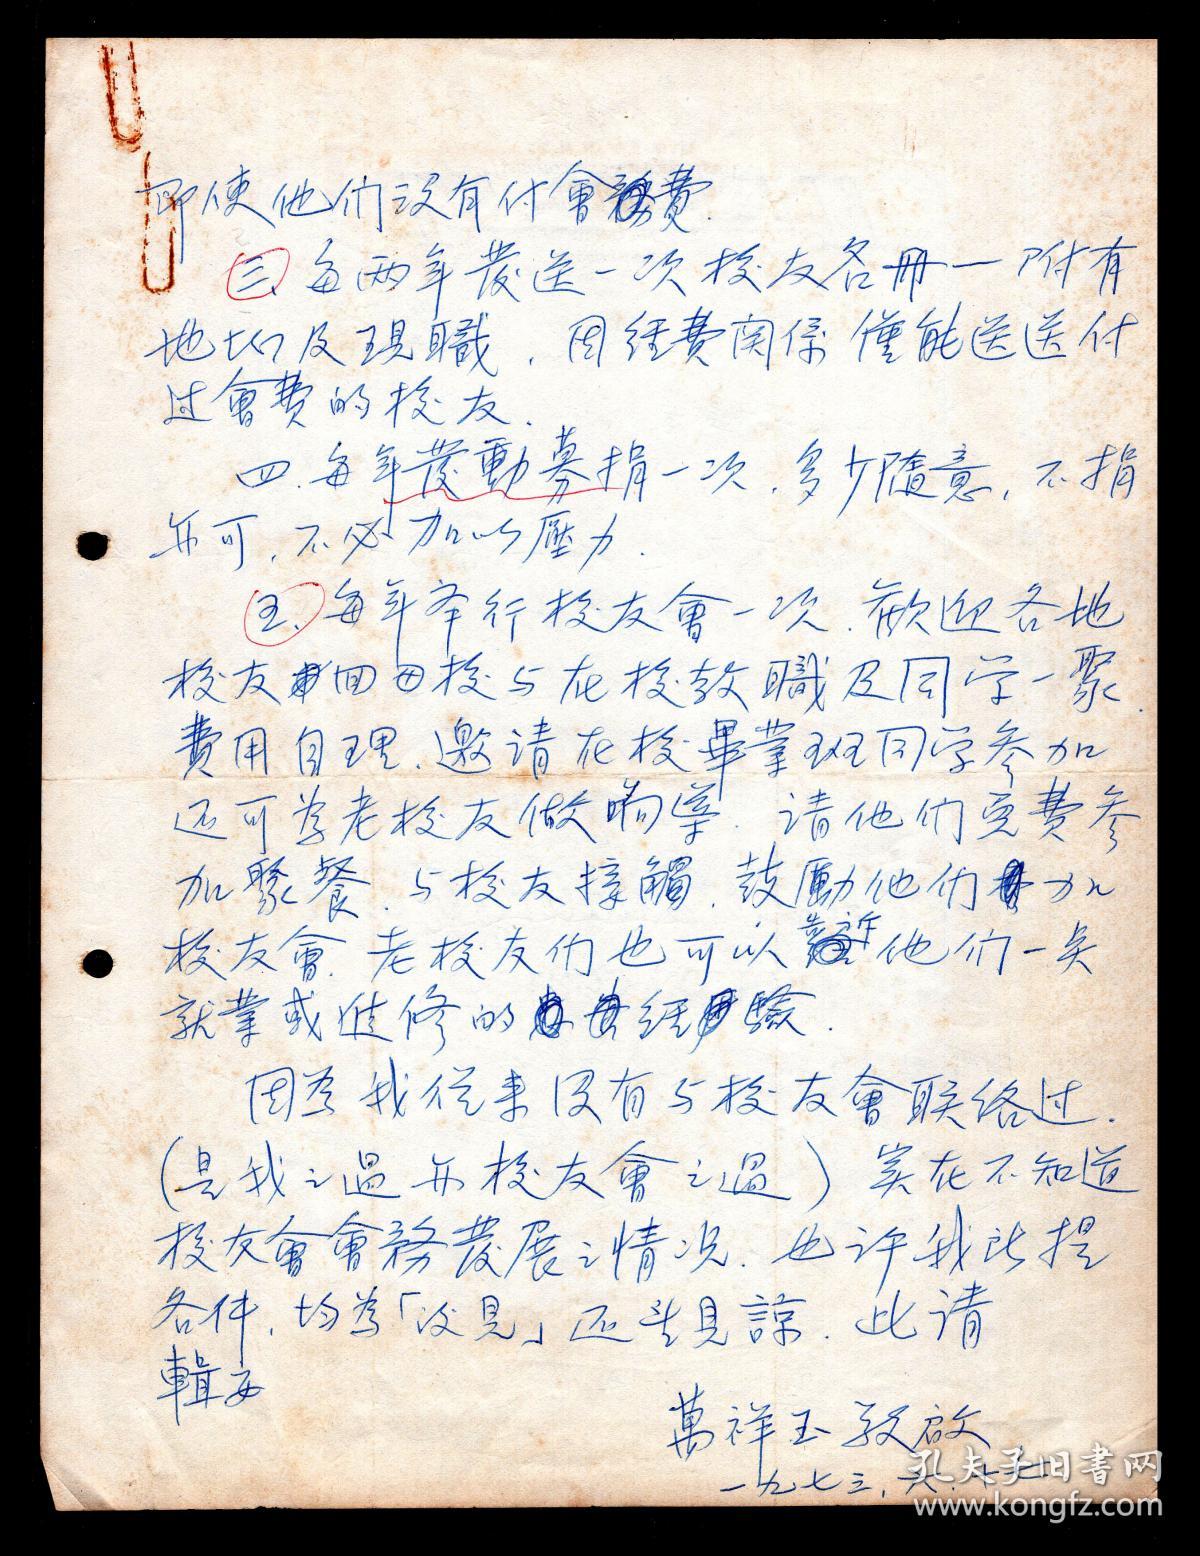 即使他们没有付會費.
三、每两年發送一次校友名冊一附有
地址及現職.因经費関係僅能送送付
过會費的校友.
四.每年發動募捐一次.多少隨意,不捐
亦可,不必加以壓力.
五、每年举行校友會一次.歡迎各地
校友回母校与在校教職及同学一聚.
費用自理.邀请在校畢業班同学参加
还可为老校友做响導.请他们免費参
加聚餐.与校友接觸.鼓勵他们加
校友會.老校友们也可以 他们一点
就業或進修的经驗.
因为我從来没有与校友會联络过.
(是我之過亦校友會之過)实在不知道
校友會會務發展之情况.也许我所提
各件,均为「 見」还 見諒.此请
輯安
萬祥玉敬啟
一九七三、六.十七
孔夫子旧書网
www.kongfz.com